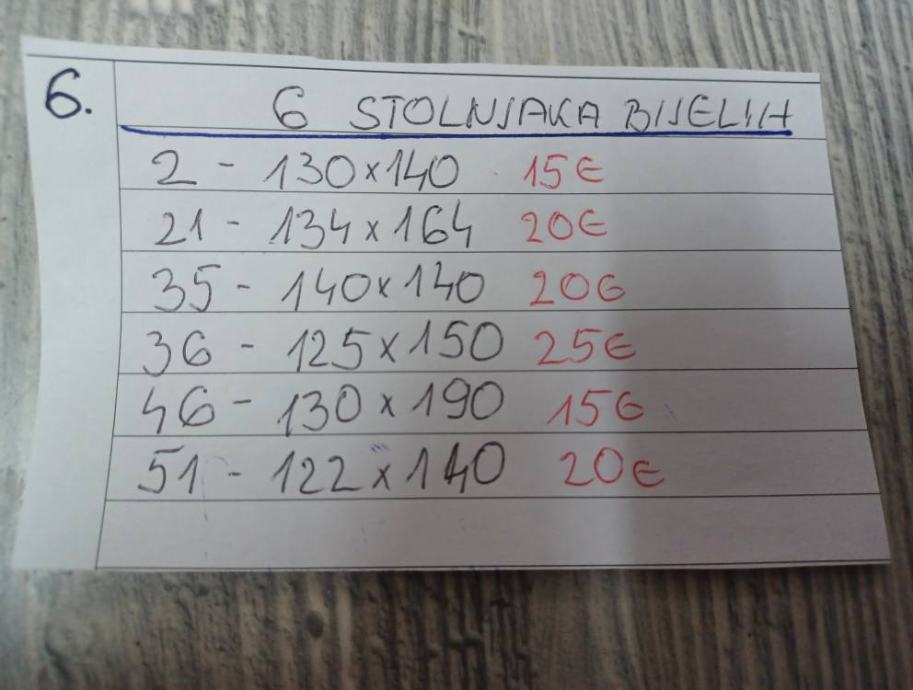 6. 6 STOLNJAKA BIJELIH
2 - 130x140 15€
21 - 134x164 20€
35 - 140x140 20€
36 - 125x150 25€
46 - 130x190 15€
51 - 122x140 20€